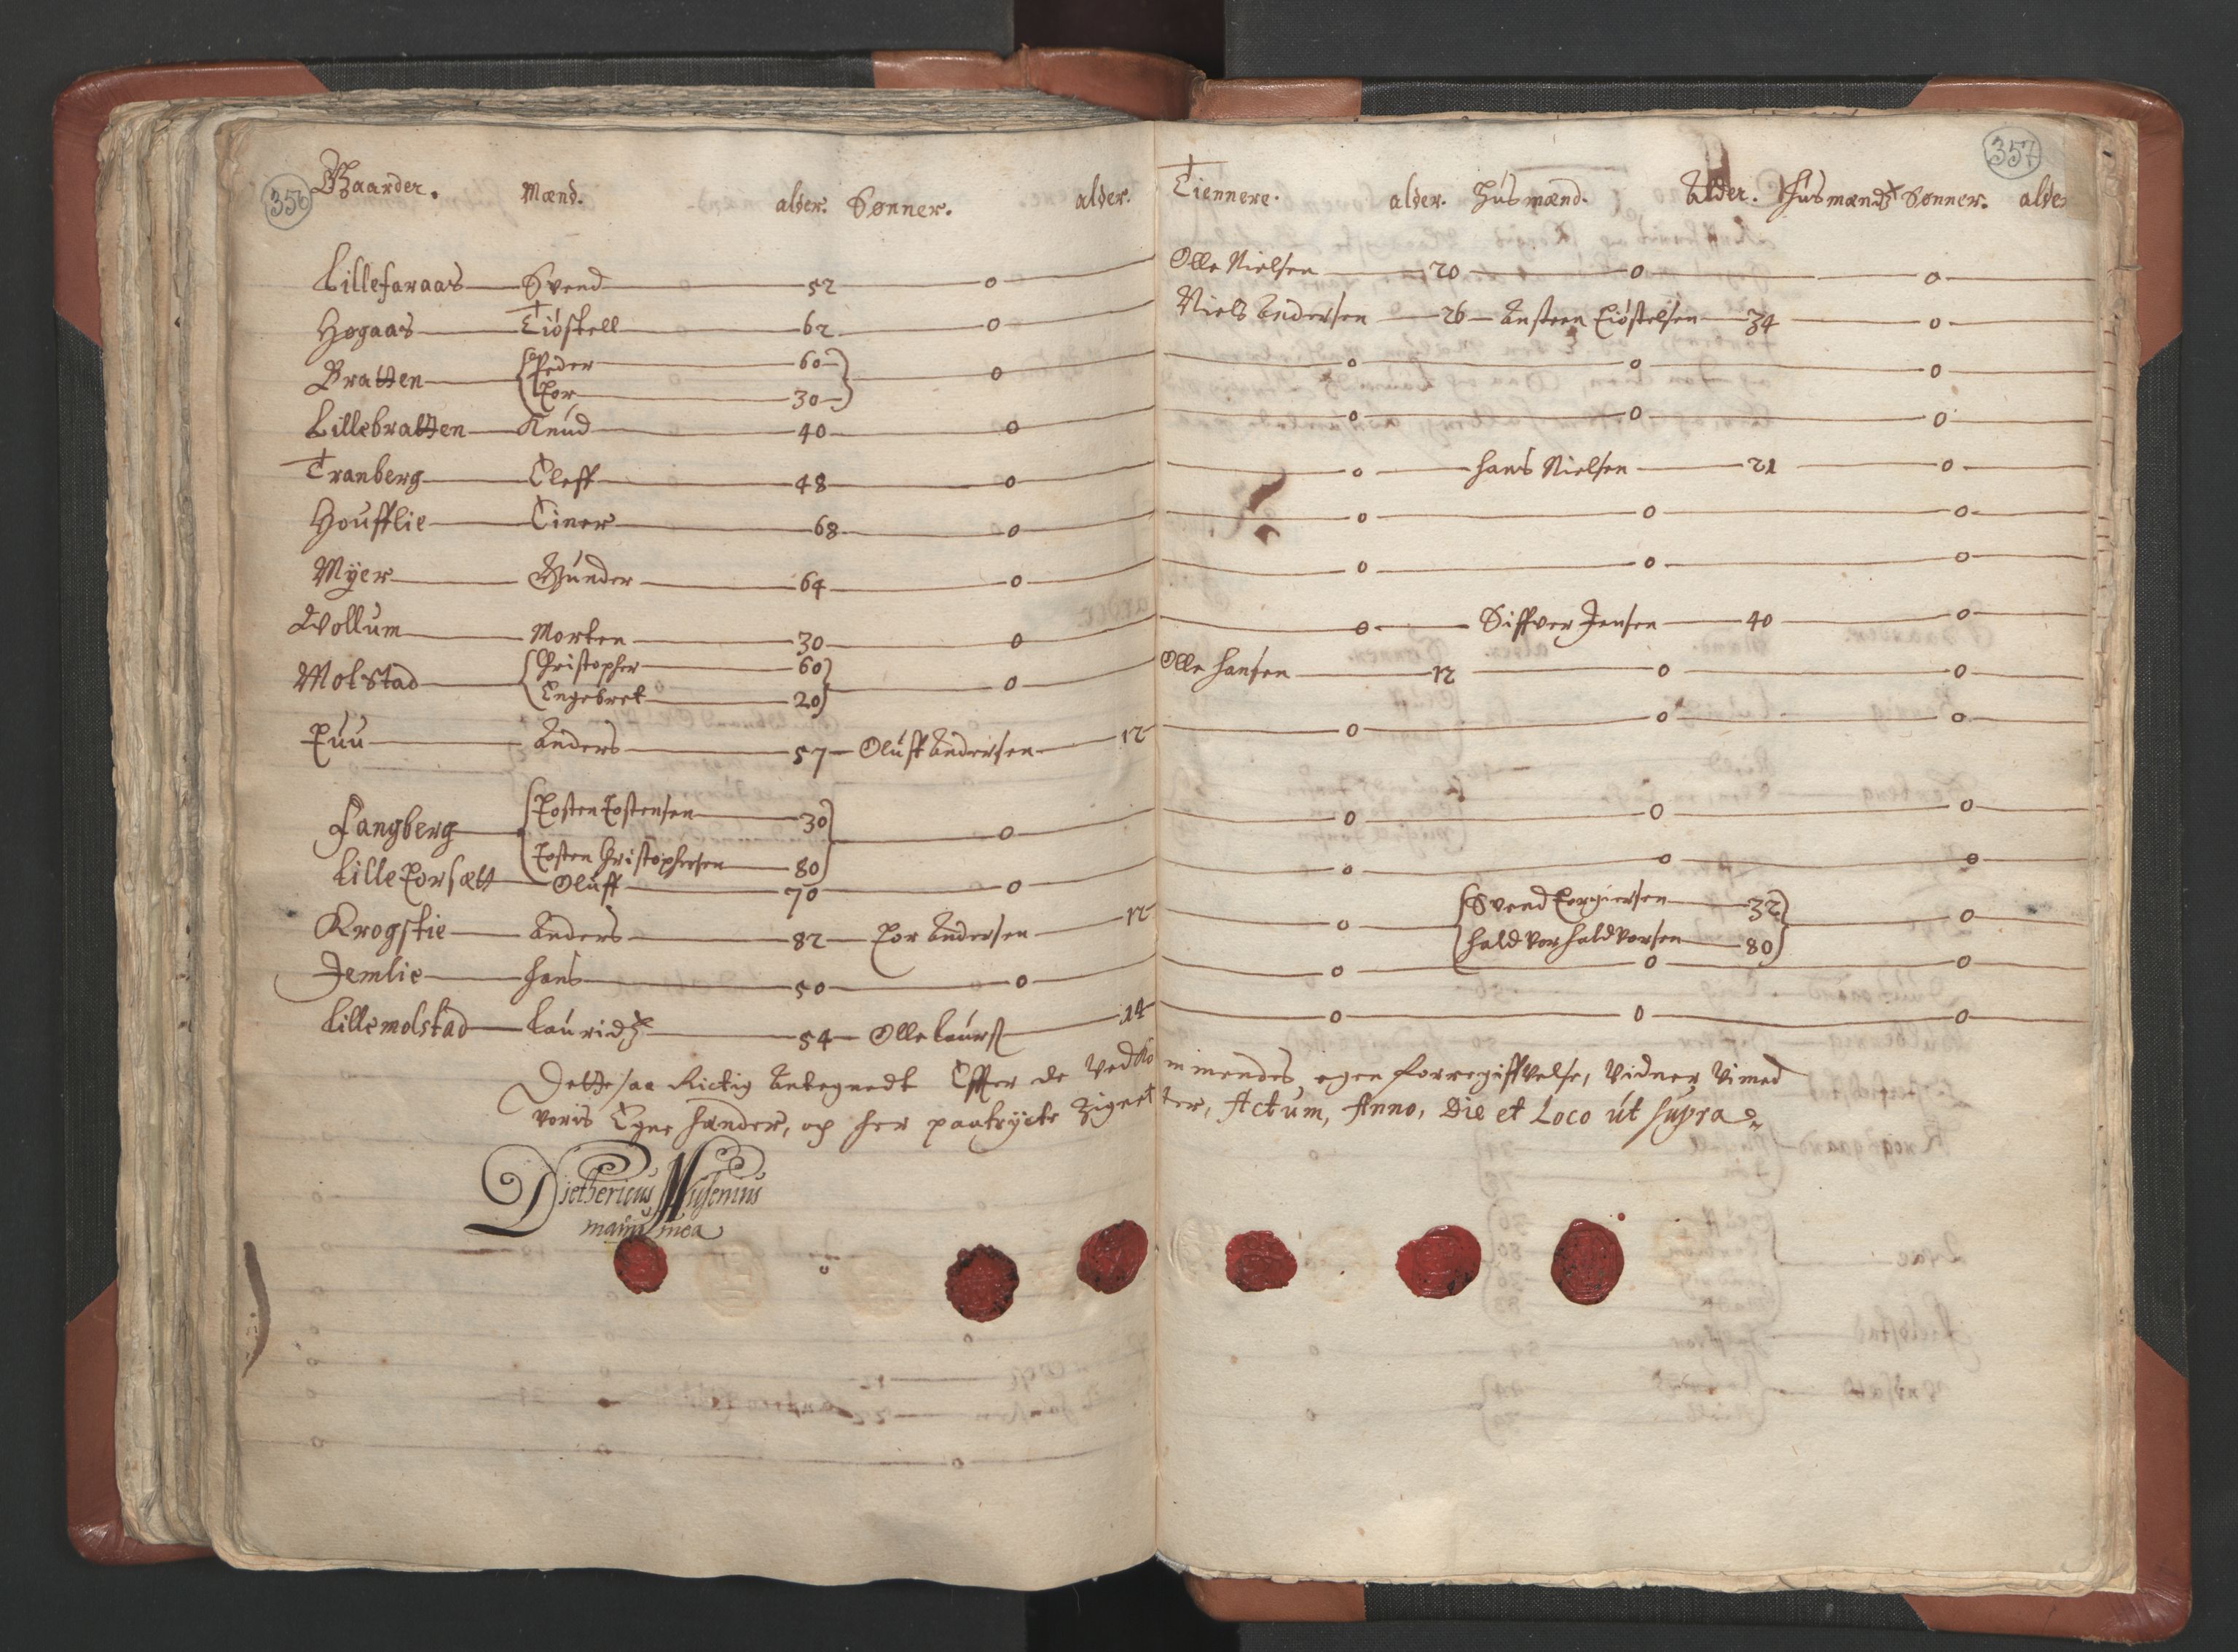 356
Gaarder. Mænd. alder. Sønner. alder.
Lillefaraas Svend 52 0
Høgaas Tióstell 62 0
Bratten Peder 60 0
Tor 30
Lillebratten Knud 40 0
Tranberg Eleff 48 0
Houfflie Einer 68 0
Mÿer Gunder 64 0
Wollum Morten 30 0
Molstad Christopher 60 0
Engebret 20
Tuu Anders 57 Oluff Andersen 12
Fangberg Tosten Tostensen 30 0
Tosten Christophersen 80
Lille Torsætt Oluff 70 0
Krogstie Anders 82 Tor Andersen 12
Jemlie Hans 50 0
Lillemolstad Lauridz 54 Olle Laurs 14
357
Tiennere. alder. Husmænd. Alder. Husmændz Sønner. alder
Olle Nielsen 20 0 0
Niels Andersen 26 Ansteen Tióstelsen 34 0
0 0 0
0 0 0
0 Hans Nielsen 21 0
0 0 0
0 0 0
0 Siffver Jensen 40 0
Olle Hansen 12 0 0
0 0 0
0 0 0
0 0 0
0 Svend Torgiersen 32 0
Haldvor Haldvorsen 80
0 0 0
0 0 0
Dette saa Rictig Antegnedt Effter de Vedkommendes egen forregiffvelse, Vidner Vi med
voris Egne hænder, og her paatrÿcte Zignetter, Actum, Anno, Die et Loco út supra
Diethericus Musenius
manu mea